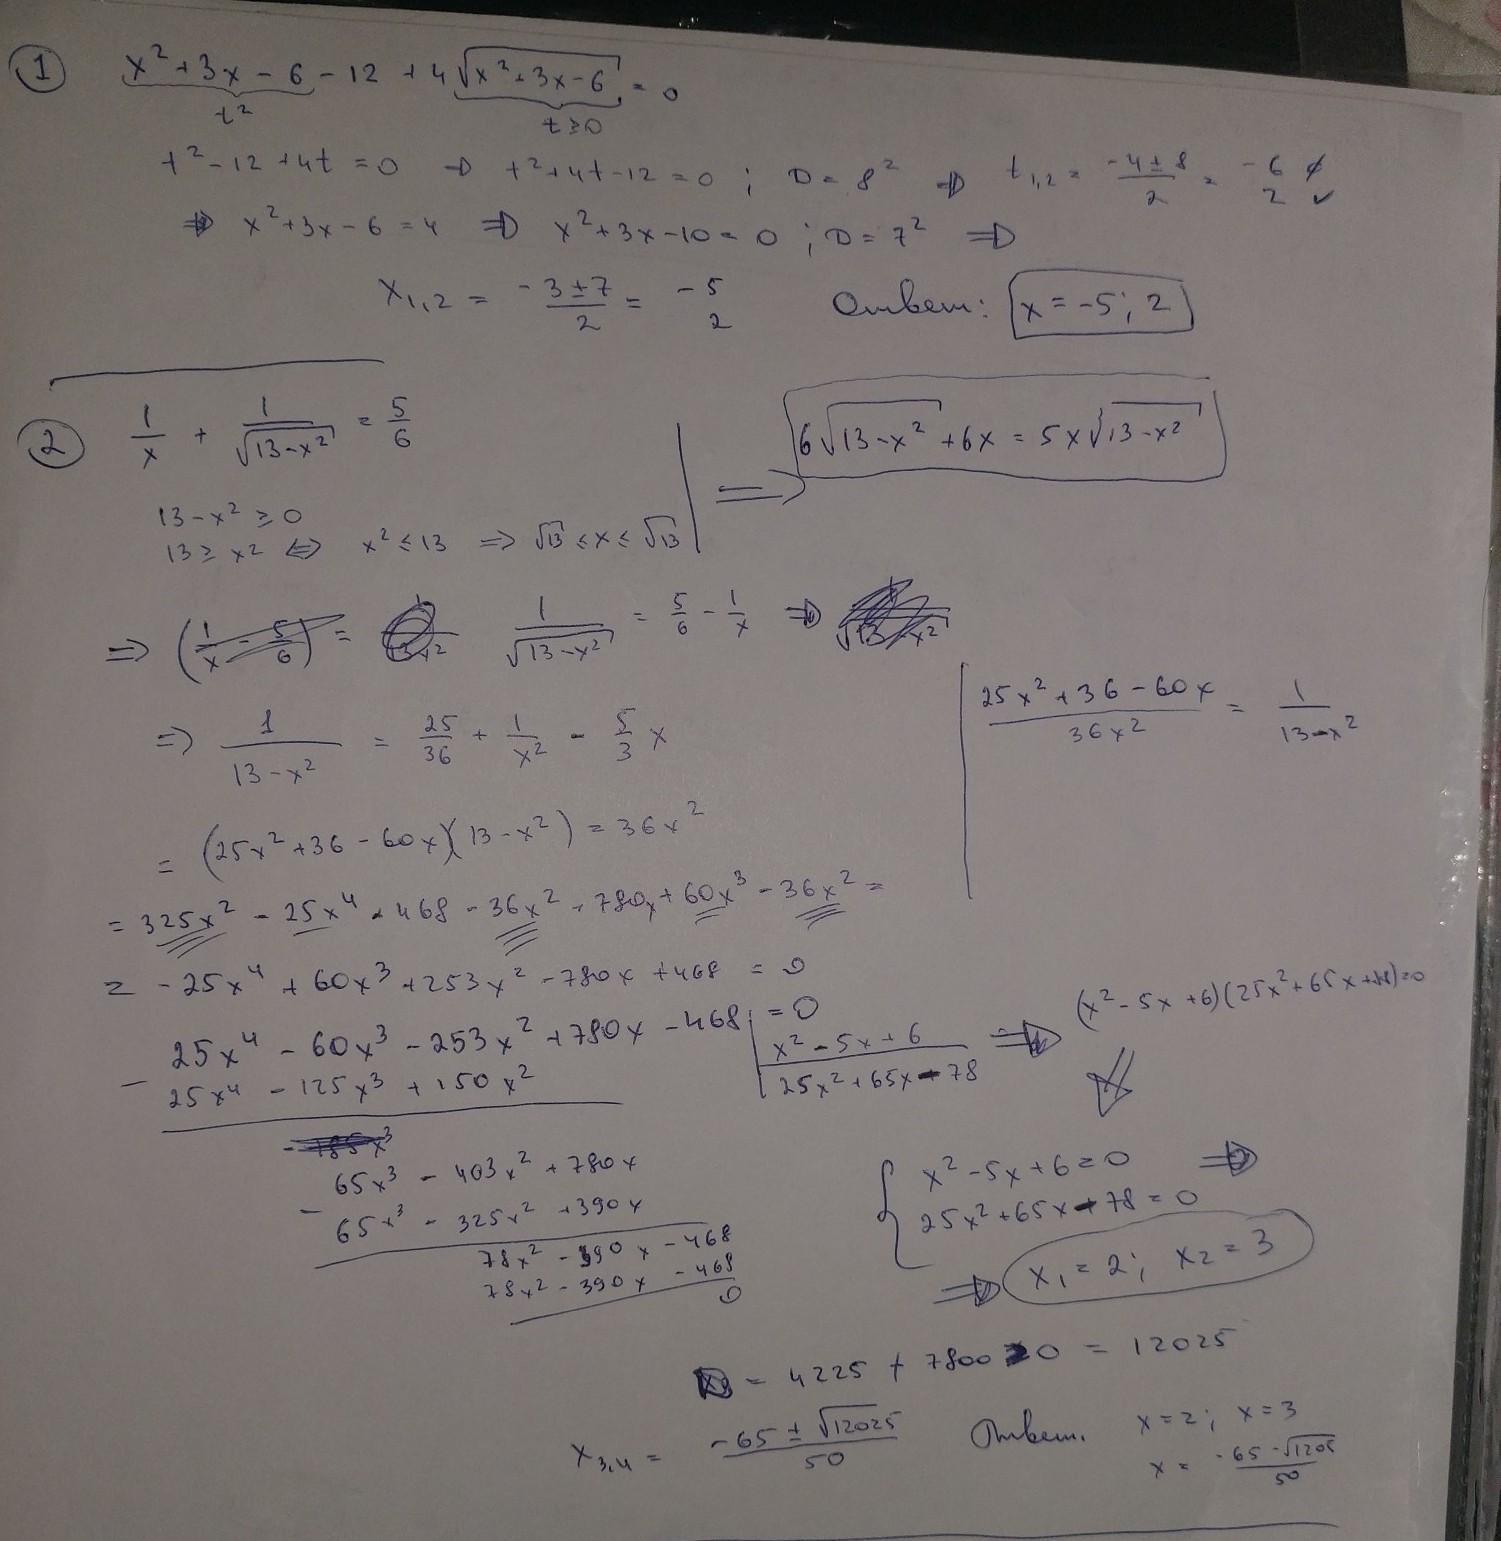 ① x² + 3x - 6 - 12 + 4√(x² + 3x - 6) = 0
t² t ≥ 0
t² - 12 + 4t = 0 ⇒ t² + 4t - 12 = 0 ; D = 8² ⇒ t₁,₂ = (-4 ± 8)/2 = -6 ∅
2 ✓
⇒ x² + 3x - 6 = 4 ⇒ x² + 3x - 10 = 0 ; D = 7² ⇒
x₁,₂ = (-3 ± 7)/2 = -5
2
Ответ: x = -5; 2
② 1/x + 1/√(13-x²) = 5/6
13 - x² ≥ 0
13 ≥ x² ⇔ x² ≤ 13 ⇒ √13 ≤ x ≤ √13
⇒ 6√(13-x²) + 6x = 5x√(13-x²)
⇒ 1/√(13-x²) = 5/6 - 1/x ⇒
⇒ 1/(13-x²) = 25/36 + 1/x² - 5/3 x
(25x² + 36 - 60x)/(36x²) = 1/(13-x²)
= (25x² + 36 - 60x)(13 - x²) = 36x²
= 325x² - 25x⁴ + 468 - 36x² - 780x + 60x³ - 36x² =
= -25x⁴ + 60x³ + 253x² - 780x + 468 = 0
25x⁴ - 60x³ - 253x² + 780x - 468 = 0
x² - 5x + 6
- 25x⁴ - 125x³ + 150x²
25x² + 65x - 78
⇒ (x² - 5x + 6)(25x² + 65x + 78) = 0
65x³ - 403x² + 780x
- 65x³ - 325x² + 390x
78x² - 390x - 468
78x² - 390x - 468
0
x² - 5x + 6 = 0 ⇒
25x² + 65x - 78 = 0
⇒ x₁ = 2; x₂ = 3
D = 4225 + 7800 = 12025
x₃,₄ = (-65 ± √12025)/50
Ответ. x = 2; x = 3
x = (-65 - √1205)/50